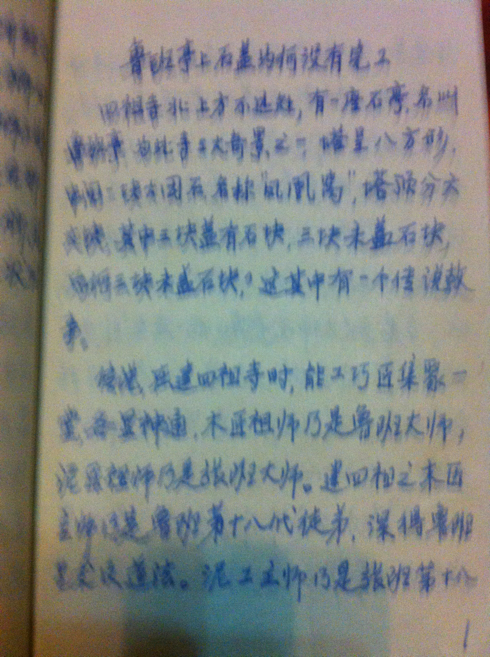 鲁班亭上石盖为何没有完工
四祖寺北上方不远处,有一座石亭,名叫
鲁班亭,为此寺三大奇景之一,塔呈八方形,
中间一块大圆石,名称"凤凰窝",塔顶分六
块,其中三块盖有石块,三块未盖石块,
为何三块未盖石块?这其中有一个传说故
事。
传说,在建四祖寺时,能工巧匠集聚一
堂,各显神通,木匠祖师乃是鲁班大师,
泥匠祖师乃是张班大师。建四祖之木匠
主师乃是鲁班第十八代徒弟,深得鲁班
道法。泥工主师乃是张班第十八
1